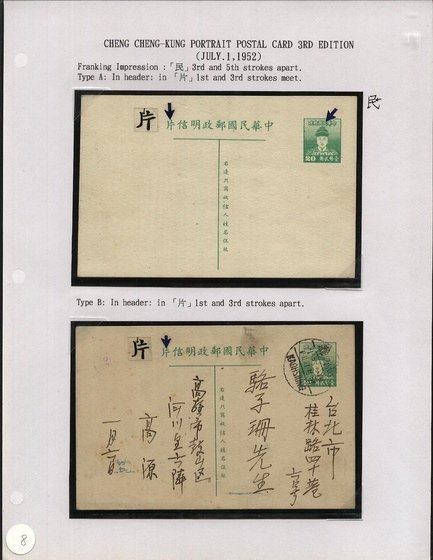 CHENG CHENG-KUNG PORTRAIT POSTAL CARD 3RD EDITION
(JULY.1,1952)
Franking Impression :「民」3rd and 5th strokes apart.
Type A: In header: in 「片」1st and 3rd strokes meet.
民
片
片信明政郵國民華中
20
右邊只寫收信人姓名住址
Type B: In header: in 「片」1st and 3rd strokes apart.
片
片信明政郵國民華中
台北市
桂林路四十巷
駱子珊先生
高雄市鼓山區
高源
8